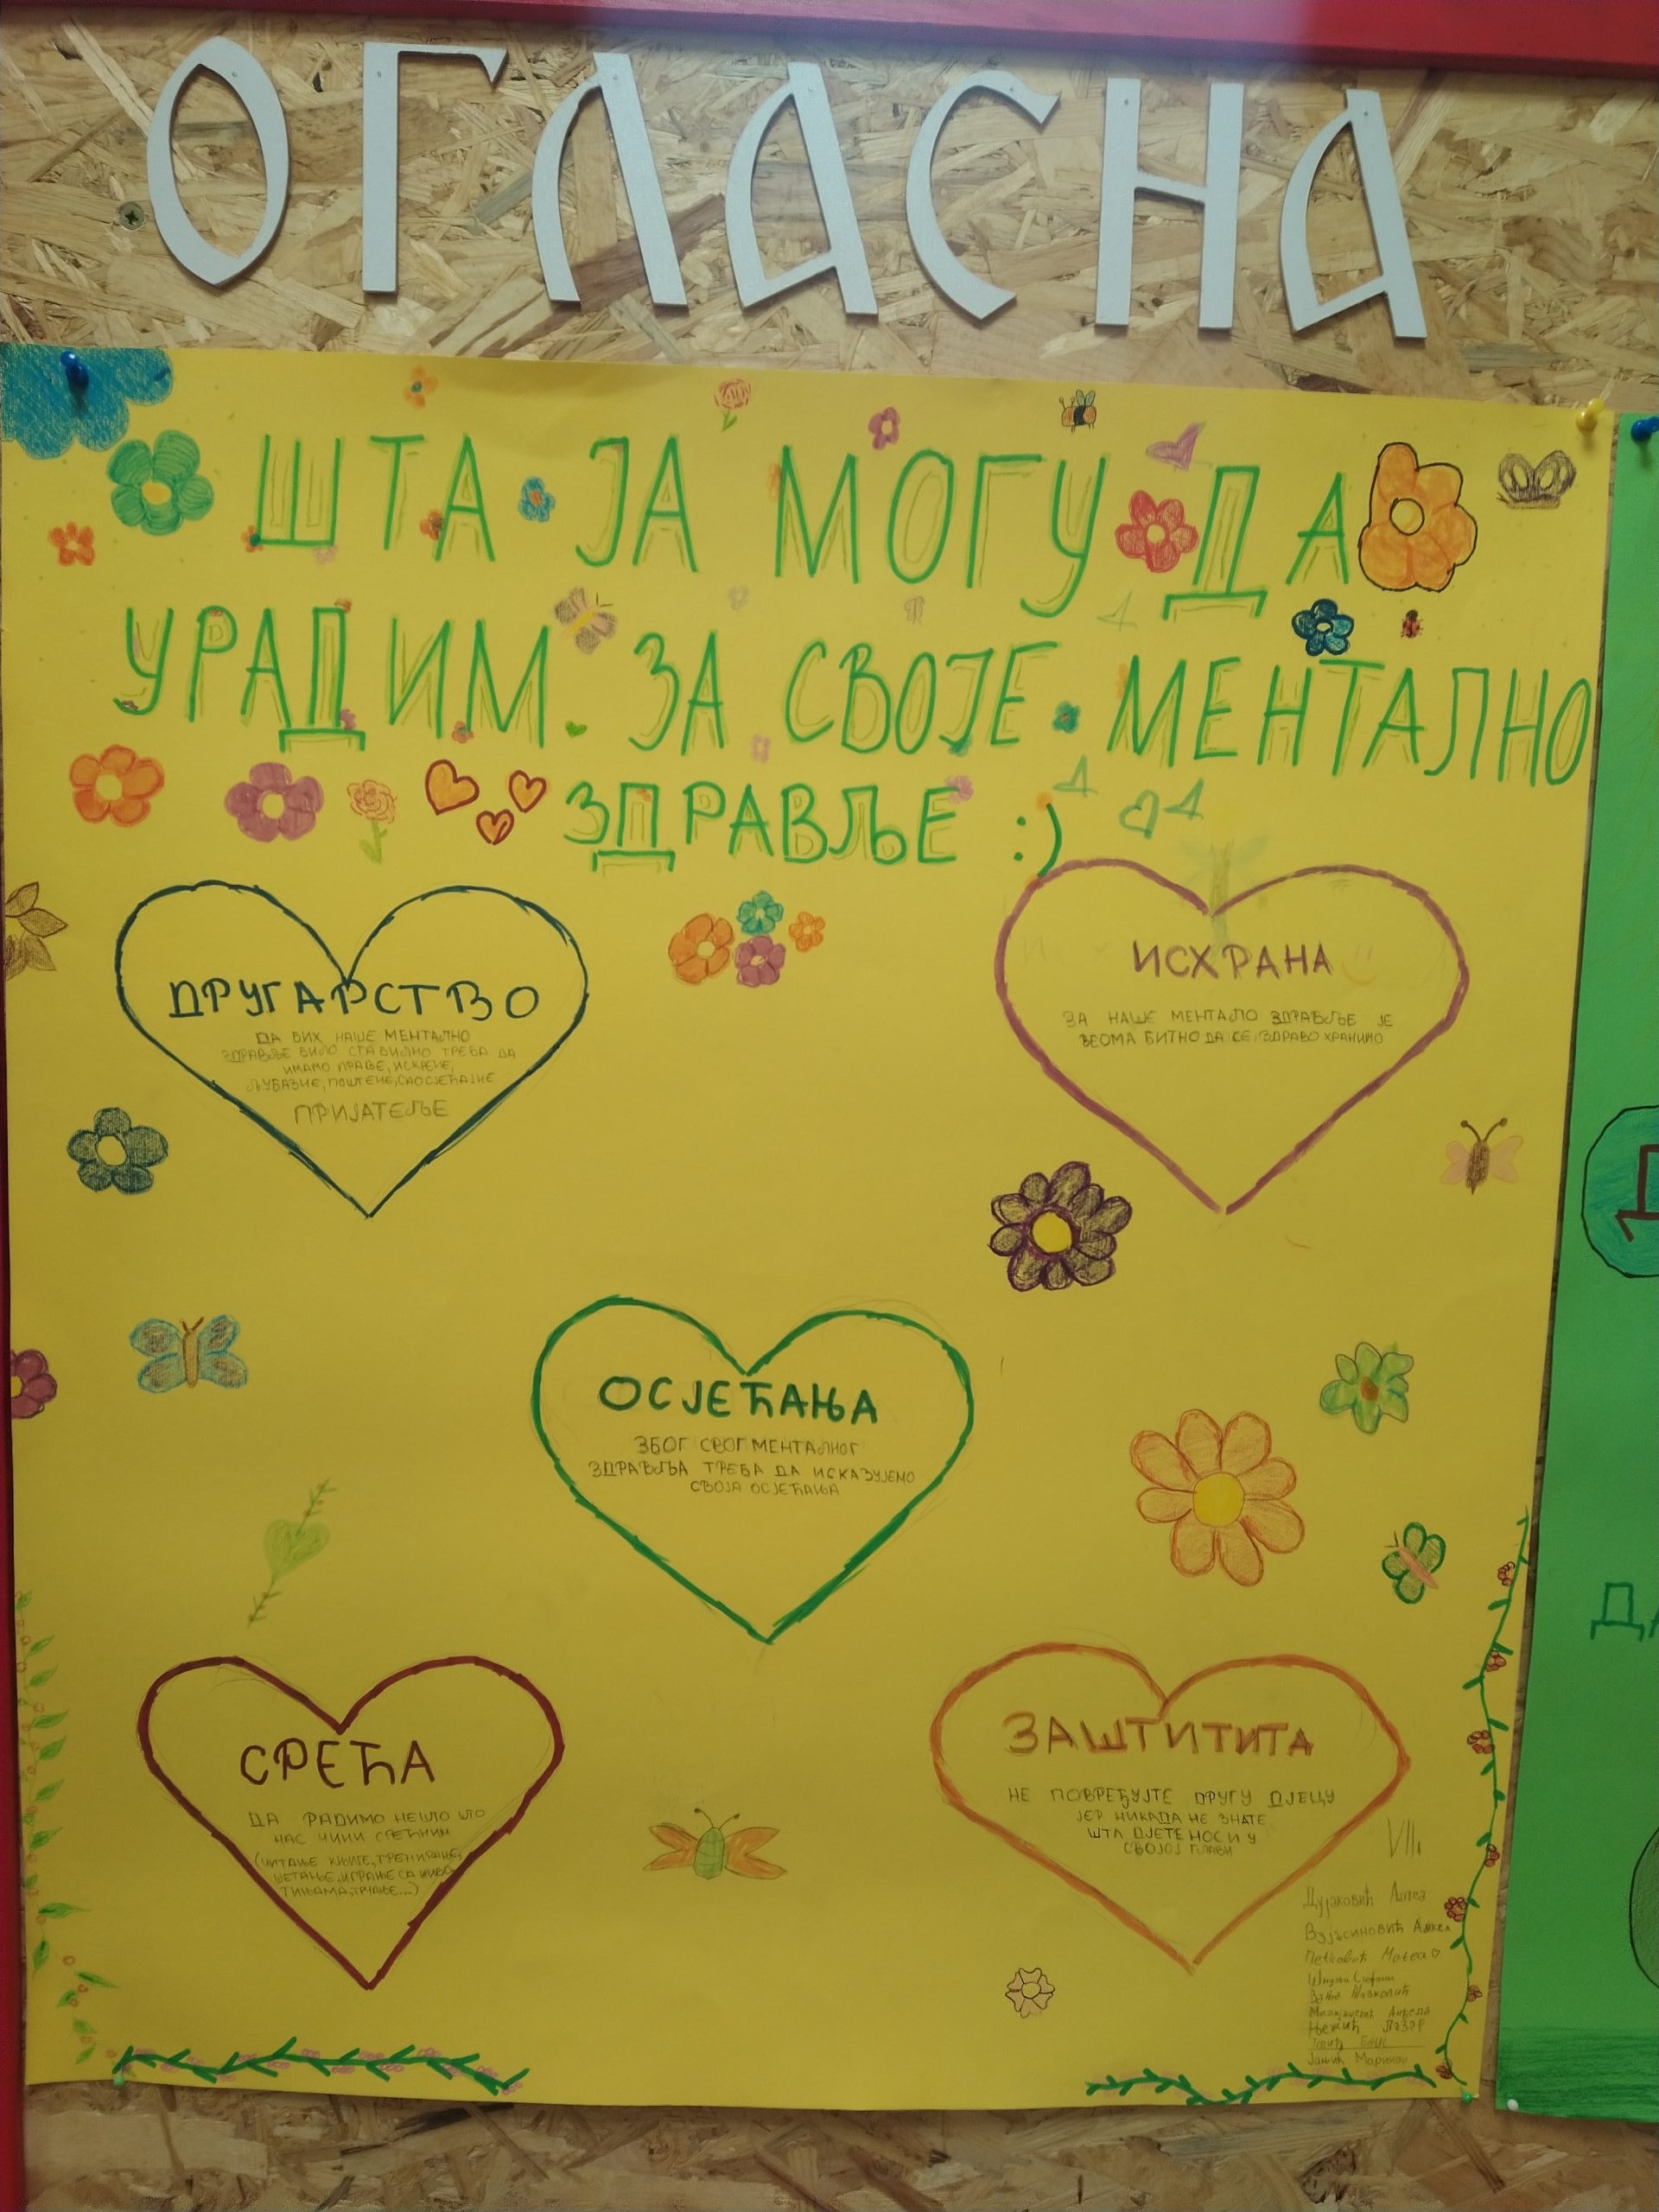 ОГЛАСНА
ШТА ЈА МОГУ ДА
УРАДИМ ЗА СВОЈЕ МЕНТАЛНО
ЗДРАВЉЕ :)
ДРУГАРСТВО
ДА БИХ НАШЕ МЕНТАЛНО
ЗДРАВЉЕ БИЛО СТАБИЛНО ТРЕБА ДА
ИМАМО ПРАВЕ, ИСКРЕНЕ,
ЉУБАЗНЕ, ПОШТЕНЕ, САОСЈЕЋАЈНЕ
ПРИЈАТЕЉЕ
ИСХРАНА
ЗА НАШЕ МЕНТАЛО ЗДРАВЉЕ ЈЕ
ВЕОМА БИТНО ДА СЕ ЗДРАВО ХРАНИМО
ОСЈЕЋАЊА
ЗБОГ СВОГ МЕНТАЛНОГ
ЗДРАВЉА ТРЕБА ДА ИСКАЗУЈЕМО
СВОЈА ОСЈЕЋАЊА
СРЕЋА
ДА РАДИМО НЕШТО ШТО
НАС ЧИНИ СРЕЋНИМ
(ЧИТАЊЕ КЊИГЕ, ТРЕНИРАЊЕ,
ШЕТАЊЕ, ИГРАЊЕ СА ЖИВО
ТИЊАМА, ТРЧАЊЕ...)
ЗАШТИТИТА
НЕ ПОВРЕЂУЈТЕ ДРУГУ ДЈЕЦУ
ЈЕР НИКАДА НЕ ЗНАТЕ
ШТА ДЈЕТЕ НОСИ У
СВОЈОЈ ГЛАВИ
VII₁
Дујаковић
Петковић Матеа
Вања
Анђела
Његић Лазар
Јањић
Д
ДА